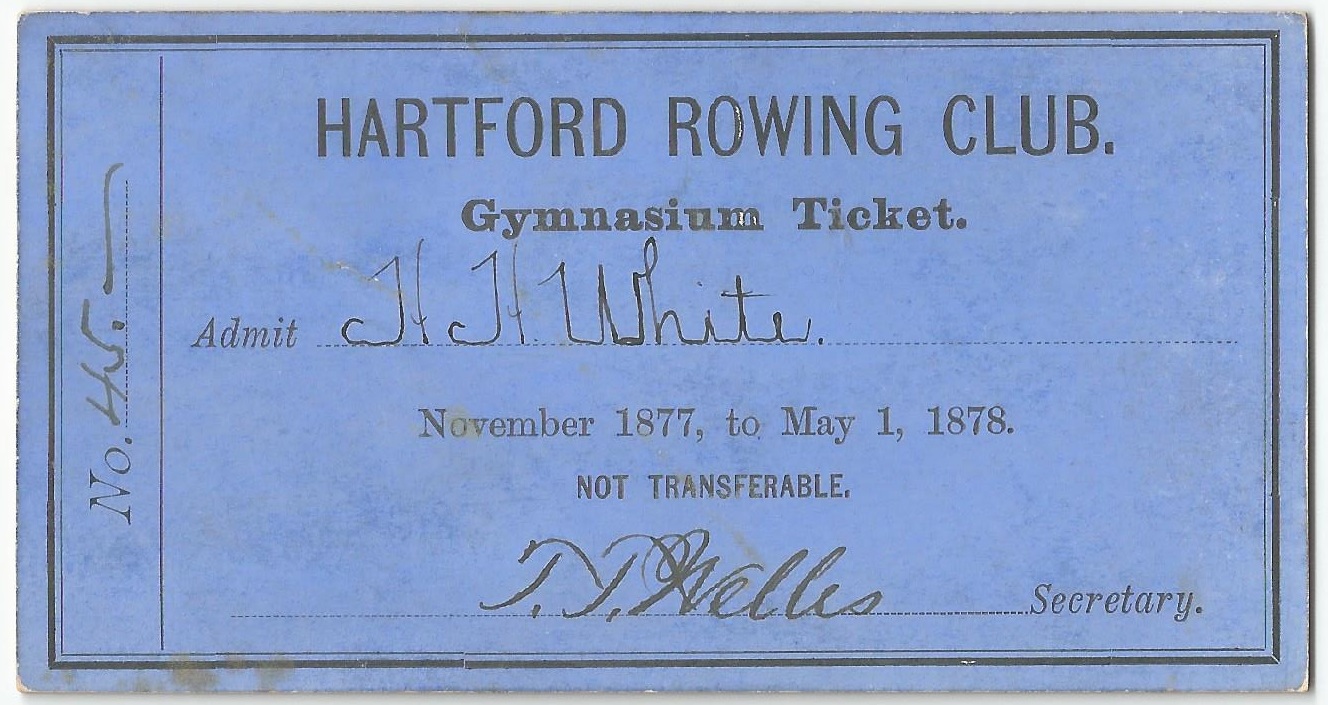 HARTFORD ROWING CLUB.
Gymnasium Ticket.
Admit H H White.
November 1877, to May 1, 1878.
NOT TRANSFERABLE.
T. T. Welles Secretary.
No. 45.